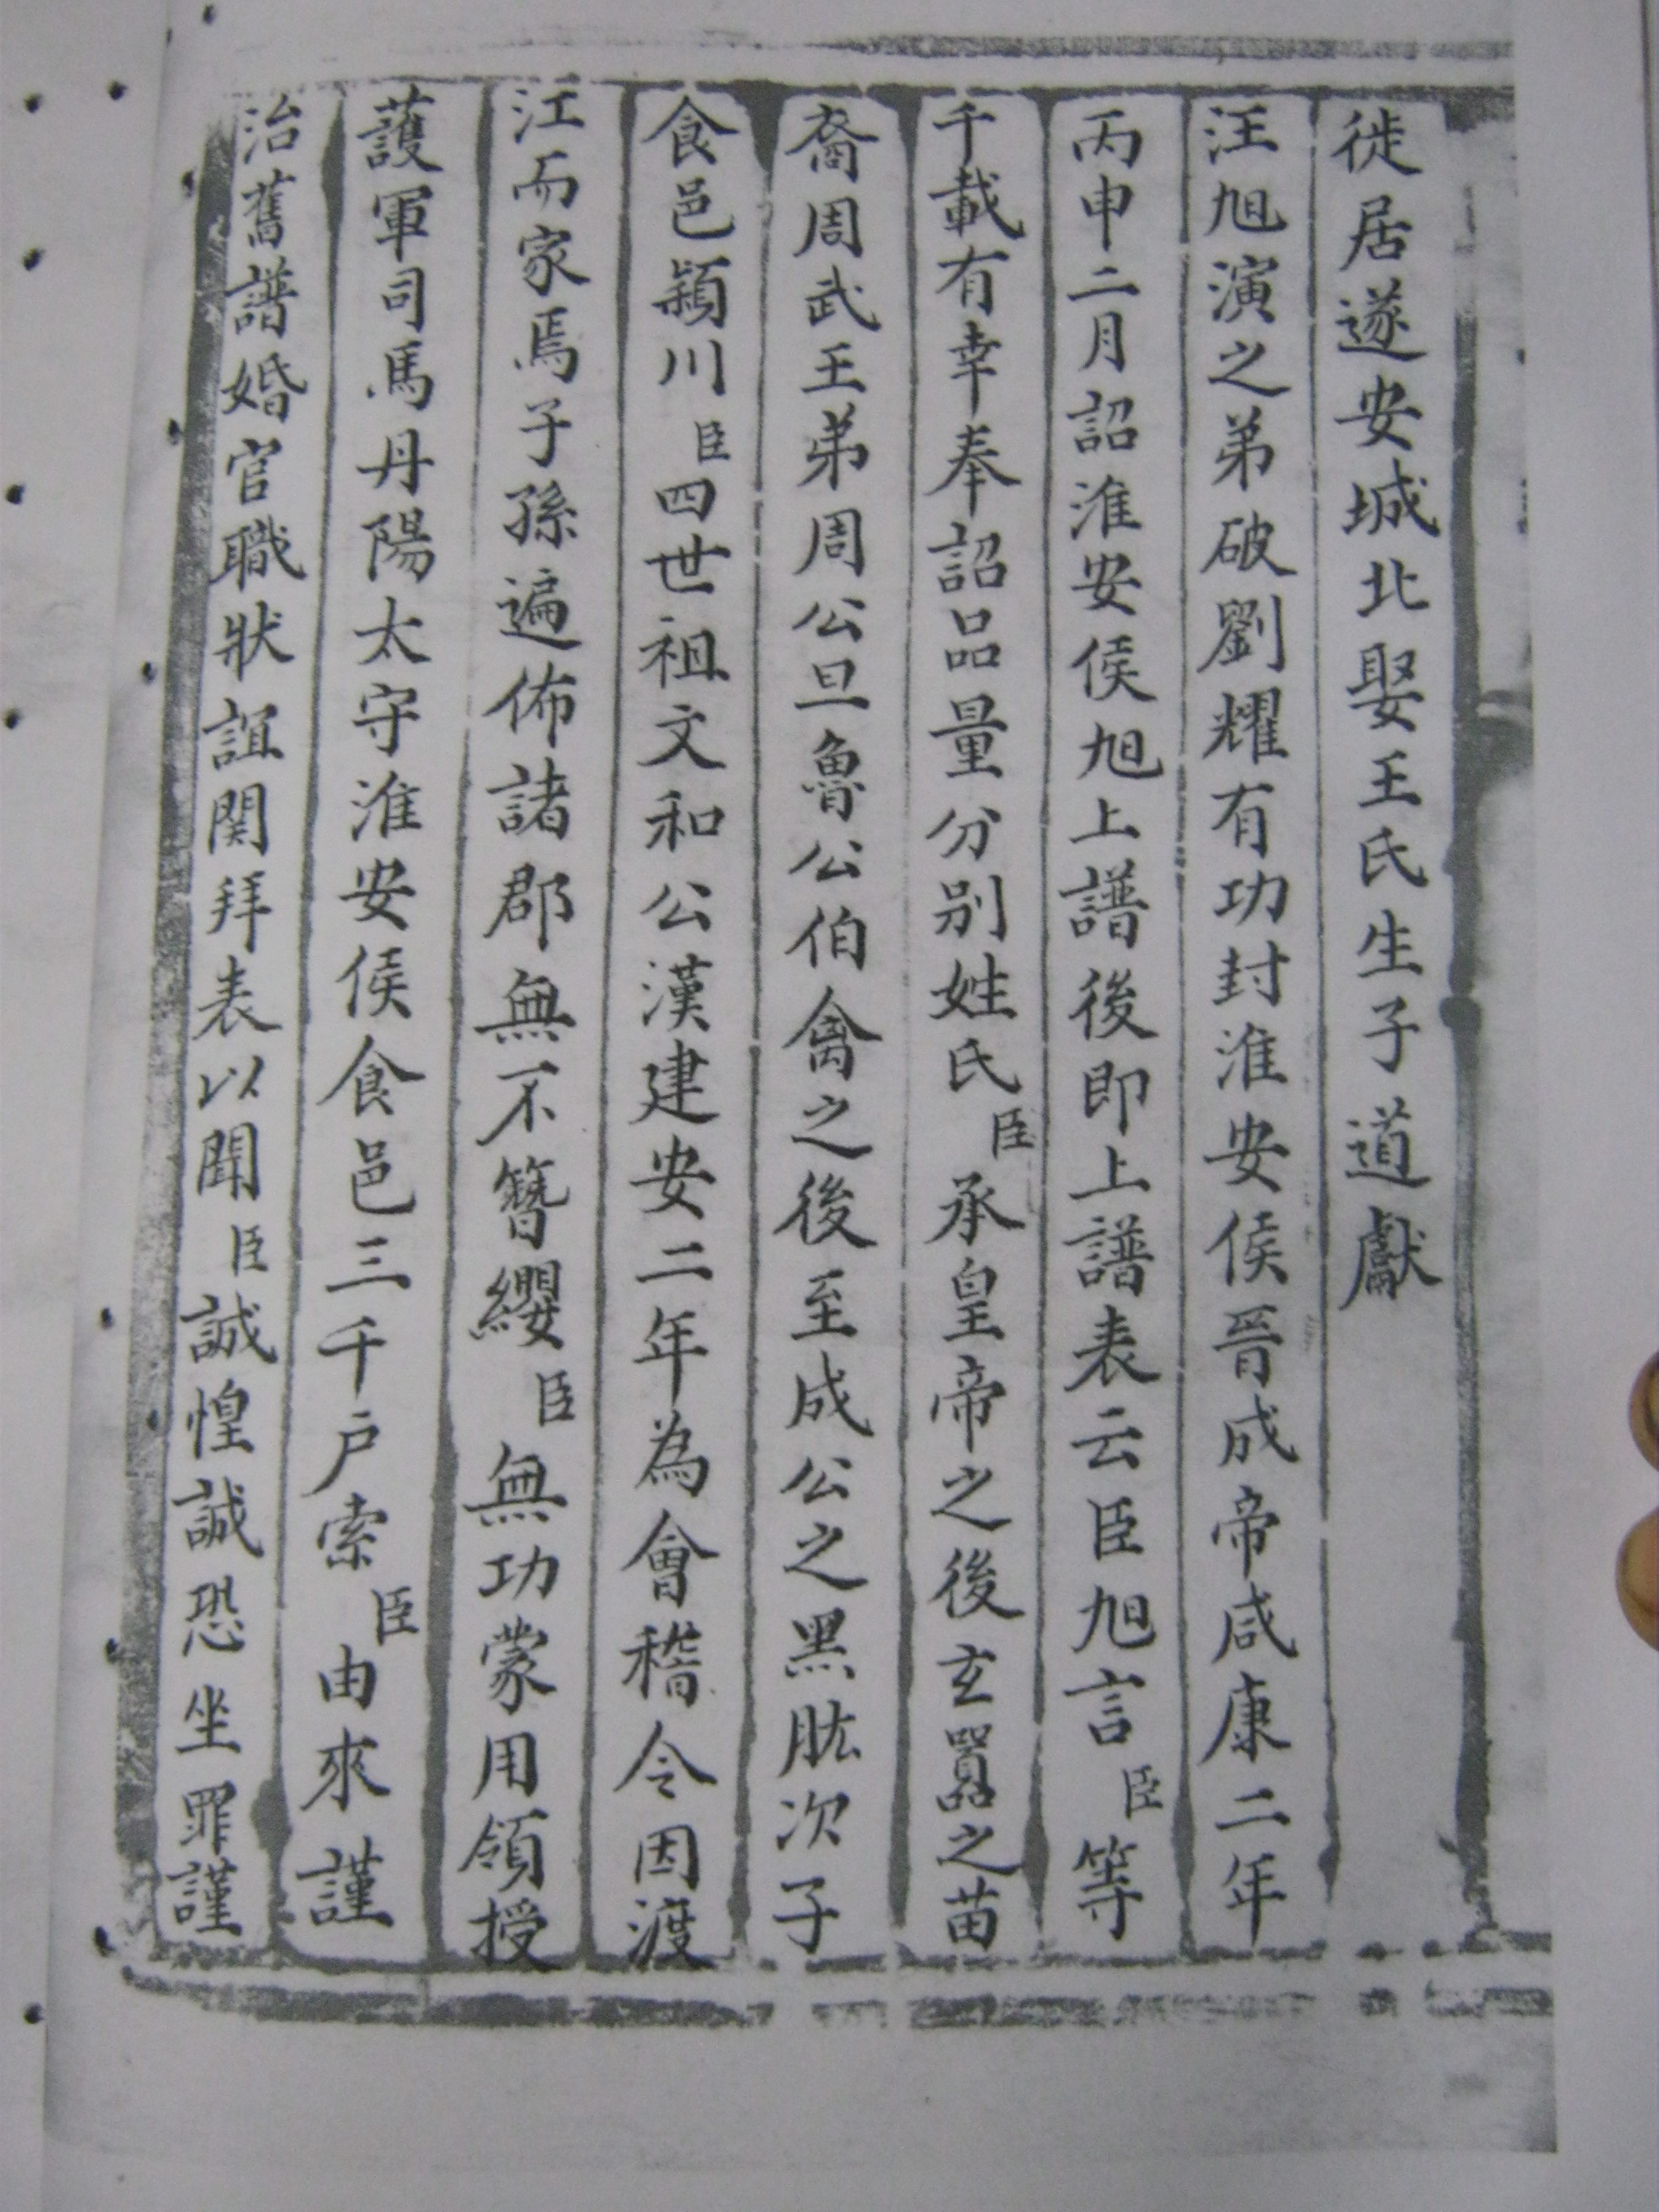 徙居遂安城北娶王氏生子道獻
汪旭演之弟破劉耀有功封淮安侯晉成帝咸康二年
丙申二月詔淮安侯旭上譜後即上譜表云臣旭言臣等
千載有幸奉詔品量分別姓氏臣承皇帝之後玄嚣之苗
裔周武王弟周公旦魯公伯禽之後至成公之黑肱次子
食邑潁川臣四世祖文和公漢建安二年為會稽令因渡
江而家焉子孫遍佈諸郡無不簪纓臣無功蒙用領授
護軍司馬丹陽太守淮安侯食邑三千户索臣由來謹
治舊譜婚官職狀誼関拜表以聞臣誠惶誠恐坐罪謹